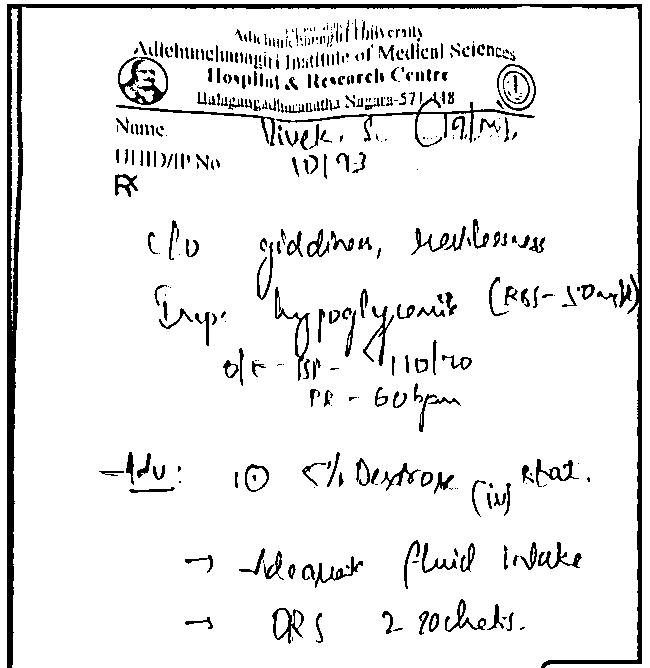 Adichunchanagiri University
Adichunchanagiri Institute of Medical Sciences
Hospital & Research Centre
Balagangadharanatha Nagara-571 448
Name Vivek. S. (19/M).
UHID/IP No 10193
Rx
C/o giddiness, restlessness
Imp: hypoglycemia (RBS-50mg/dl)
O/E - BP - 110/70
PR - 60bpm
Adv: 5% Dextrose (iv) stat.
→ Adequate fluid intake
→ ORS 2 sachets.